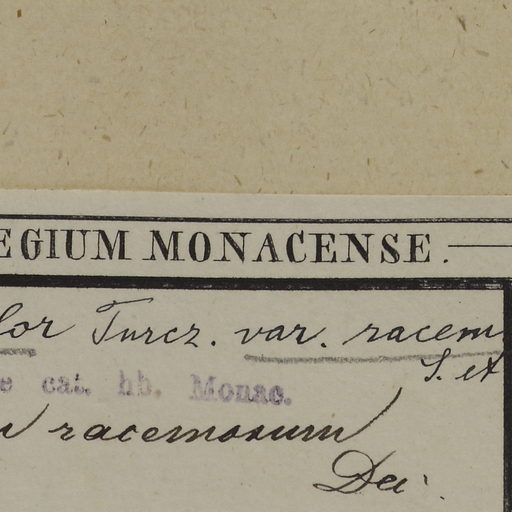 EGIUM MONACENSE.
lor Turcz. var. racem
S. et
e cat. hb. Monac.
racemosum